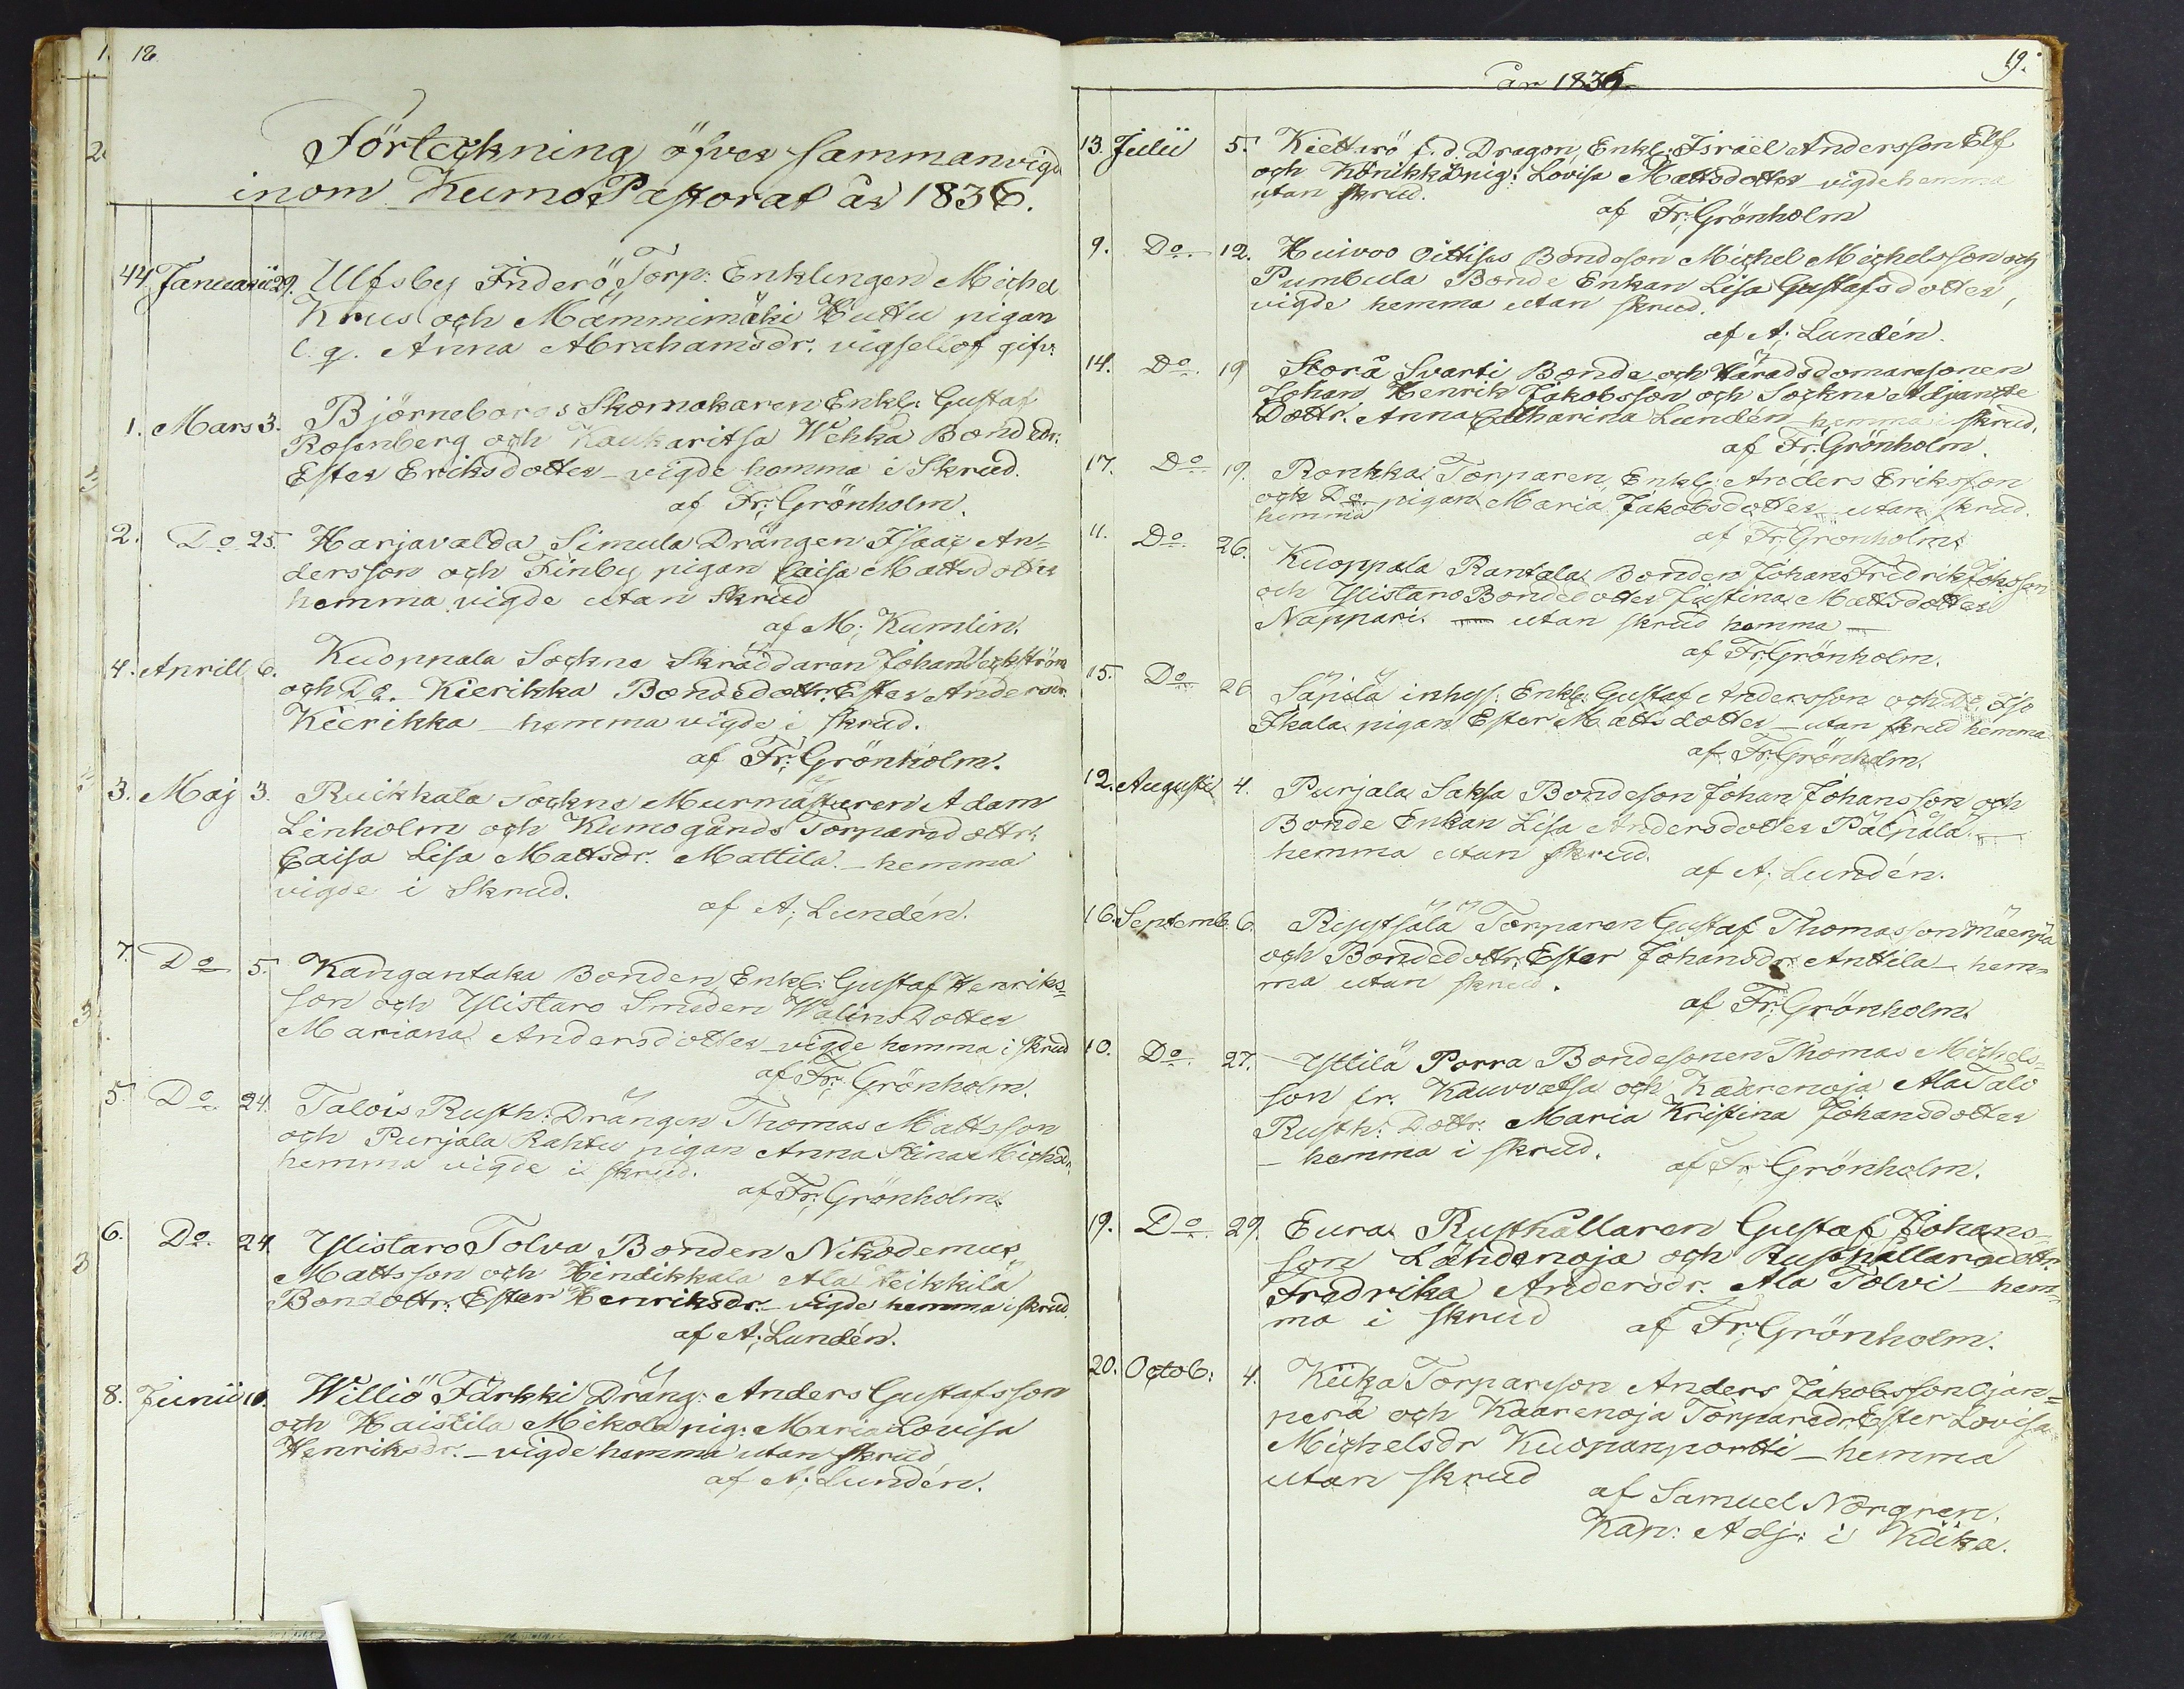 18.
Förteckning öfver Sammanvigde
inom Kumo Pastorat år 1836.
44. Januarii 29. Ulfsby Inderö Torp: Enklingen Michel
Krus och Mämmimäki Huttu pigan
l. q. Anna Abrahamsdr. vigsellof gifv:
1. Mars 3. Björneborgs Skomakaren Enkl: Gustaf
Rosenberg och Kaukaritsa Wehka Bondedr:
Ester Eriksdotter - vigde hemma i Skrud.
af Fr: Grönholm.
2. Do 25. Harjavalda Simula Drängen Isaac An=
dersson och Finby pigan Caisa Mattsdotter
hemma vigde utan Skrud
af M: Kumlin.
4. Aprill 6. Kuoppala Sockne Skräddaren Johan
och Do. Kierikka Bondedottr. Ester Andersdr.
Kierikka - hemma vigde i skrud.
af Fr: Grönholm.
3. Maj 3. Ruikkala Sockne Murmästaren Adam
Linholm och Kumogårds Torparedottr:
Caisa Lisa Mattsdr. Mattila. - hemma
vigde i Skrud.
af A: Lundén.
7. Do 5. Kangantaka Bonden, Enkl: Gustaf Henriks=
son och Ylistaro Smeden Walins Dotter
Mariana Andersdotter - vigde hemma i skrud
af Fr: Grönholm.
5. Do 24. Talois Rusth: Drängen Thomas Mattsson
och Purjala Rahtu pigan Anna Stina Michsdr.
hemma vigde i skrud.
af Fr: Grönholm.
6. Do. 24. Ylistaro Tolva Bonden Nikodemus
Mattsson och Hindikkala Ala Heikkilä
Bondottr: Ester Henriksdr. - vigde hemma i skrud.
af A: Lundén.
8. Junii 10. Williö Färkki Dräng: Anders Gustafsson
och Haistila Mikola pig: Maria Lovisa
Henriksdr. - vigde hemma utan skrud
af A: Lundén.
19.
år 1836.
13. Julii 5. f.d. Dragon, Enkl: Israël Andersson Elf
och pig: Lovisa Mattsdotter vigde hemma
utan skrud.
af Fr: Grönholm
9. Do. 12. Huivoo Oittis Bondeson Michel Michelsson och
Pumbula Bonde Enkan Lisa Gustafsdotter,
vigde hemma utan skrud.
af A: Lundén.
14. Do. 19 Storå Svarti Bonde och Häradsdomaresonen
Johan Henrik Jakobsson och Sockne Adjuncte
Dottr. Anna Catharina Lundén hemma i skrud.
af Fr: Grönholm.
17. Do 19. Ronkka Torparen, Enkl: Anders Eriksson
och Do pigan Maria Jakobsdotter - utan skrud.
hemma
af Fr: Grönholm.
11. Do. 26. Kuoppala Rantala Bonden Johan Fredrik Johsson
och Ylistaro Bondedotter Justina Mattsdotter
Nappari. - utan skrud hemma -
af Fr: Grönholm.
15. Do 26 Säpilä inhys: Enkl: Gustaf Andersson och Do. Iso
Ikala pigan Ester Mattsdotter - utan skrud hemma.
af Fr: Grönholm.
12. Augusti 4. Purjala Saksa Bondeson Johan Johansson och
Bonde Enkan Lisa Andersdotter Pälpälä. -
hemma utan skrud.
af A: Lundén.
16. Septemb. 6. Ryytsälä Torparen Gustaf Thomasson Mäenpä
och Bondedottr: Ester Johansdr: Anttila - hem=
ma utan skrud.
af Fr: Grönholm.
10. Do. 27. Yttilä Porra Bondesonen Thomas Michels=
son fr. Kauvvatsa och Kaarenoja Ala Talo
Rusth: Dottr: Maria Kristina Johansdotter
- hemma i skrud.
af Fr: Grönholm.
19. Do. 29. Eura Rusthållaren Gustaf Johans=
son Lähdenoja och Rusthållaredottr
Fredrika Andersdr. Ala Tolvi - hem=
ma i skrud
af Fr: Grönholm.
20. Octob: 4. Kiika Torpareson Anders Jakobsson Ojan=
perä och Kaarenoja Torparedr: Ester Lovisa
Michelsdr Kuopanportti - hemma
utan skrud
af Samuel Norgren.
Kap: Adj: i Kiika.